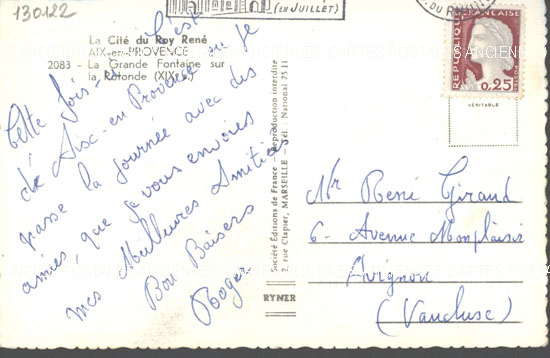 130122
(EN JUILLET)
La Cité du Roy René
AIX-en-PROVENCE
2083 - La Grande Fontaine sur
la Rotonde (XIXe s.)
Cette fois-ci c'est
de Aix-en Provence où je
passe la journée avec des
amies, que je vous envoies
mes Meilleures Amitiés
Bon Baisers
Roger
Société Editions de France - Reproduction interdite
7, rue Clapier, MARSEILLE - Tél. National 75 11
RYNER
RÉPUBLIQUE FRANÇAISE
0,25
VÉRITABLE
Mr René Giraud
6 - Avenue Monplaisir
Avignon
(Vaucluse)